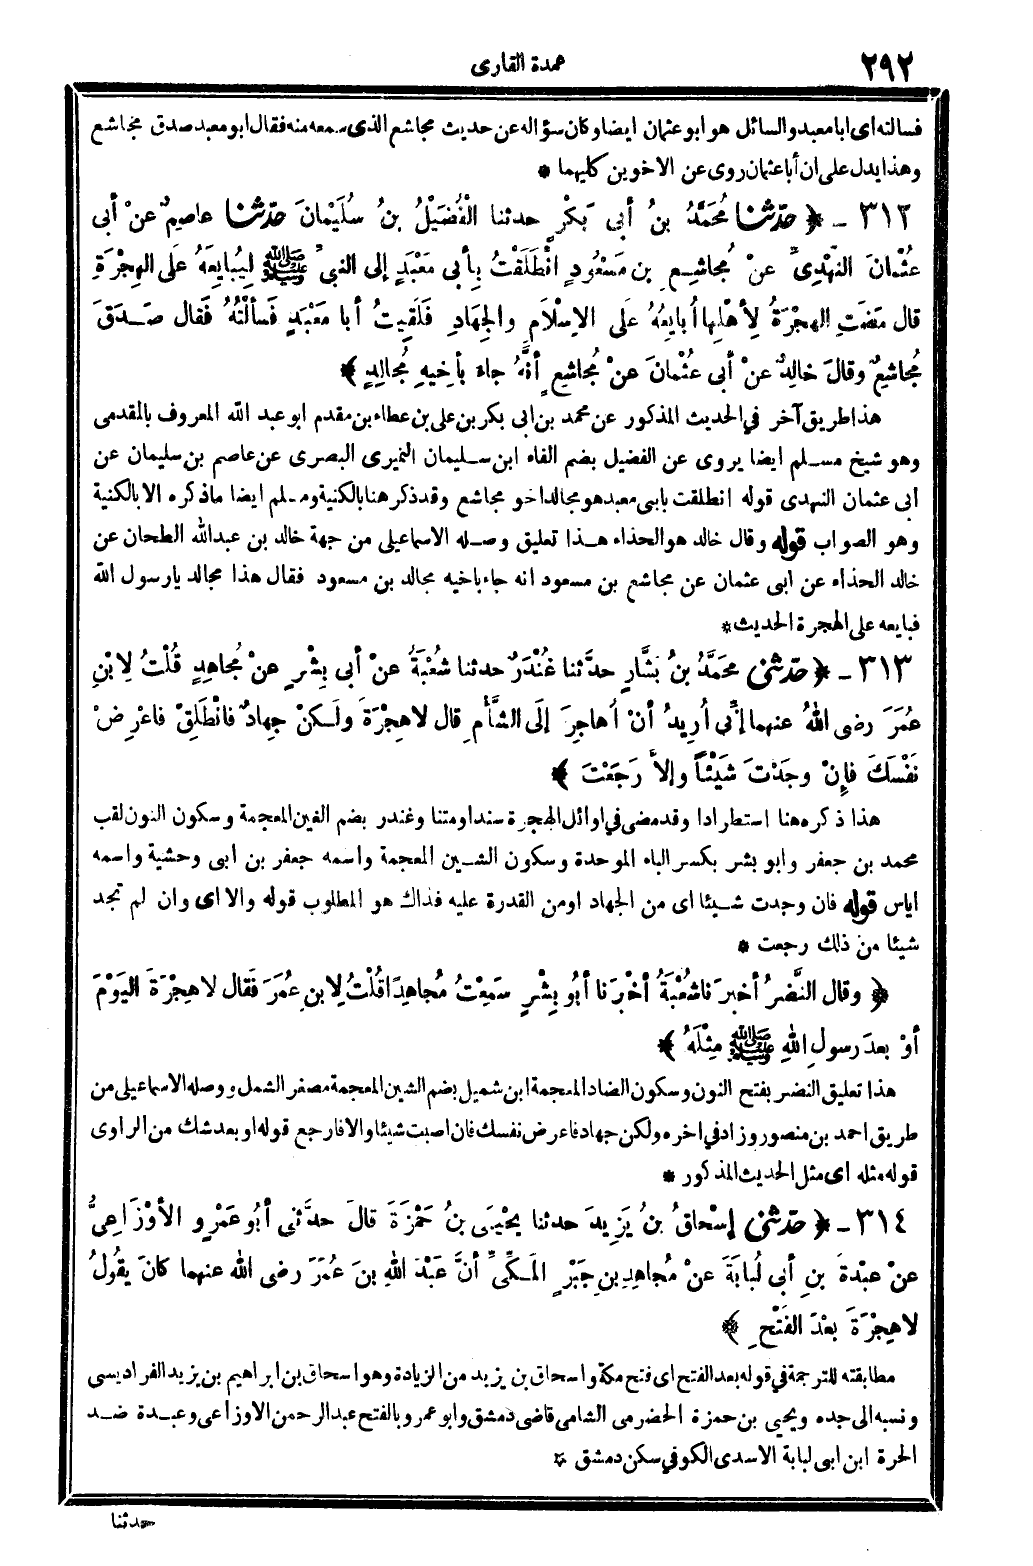 ٢٩٢
عمدة القارى
فسالته اى ابا معبد والسائل هو ابو عثمان ايضا وكان سؤاله عن حديث مجاشع الذى سمعه منه فقال ابو معبد صدق مجاشع
وهذا يدل على ان أبا عثمان روى عن الاخوين كليهما *
٣١٢ - ﴿ حَدَّثَنَا مُحَمَّدُ بنُ أبى بَكْرٍ حدثنا الْفُضَيْلُ بنُ سُلَيْمَانَ حَدَّثَنَا عاصِمٌ عنْ أبى
عُثْمانَ النَّهْدِىِّ عنْ مُجاشِعِ بنِ مَسْعُودٍ انْطَلَقْتُ بِأبى مَعْبَدٍ إلى النبىِّ ﷺ لِيُبايِعَهُ عَلَى الهِجْرَةِ
قال مَضَتِ الهِجْرَةُ لِأهْلِها أُبايِعُهُ عَلَى الإسْلاَمِ والجِهَادِ فَلَقِيتُ أبا مَعْبَدٍ فَسألْتُهُ فَقال صَدَقَ
مُجاشِعٌ وقالَ خالِدٌ عنْ أبى عُثْمانَ عنْ مُجاشِعٍ أنَّهُ جاءَ بأخِيهِ مُجالِدٍ ﴾
هذا طريق آخر في الحديث المذكور عن محمد بن ابى بكر بن على بن عطاء بن مقدم ابو عبد الله المعروف بالمقدمى
وهو شيخ مسلم ايضا يروى عن الفضيل بضم الفاء ابن سليمان النميرى البصرى عن عاصم بن سليمان عن
أبى عثمان النهدى قوله انطلقت بابى معبد هو مجالد اخو مجاشع وقد ذكر هنا بالكنية ومسلم ايضا ما ذكره الا بالكنية
وهو الصواب قوله وقال خالد هو الحذاء هذا تعليق وصله الاسماعيلى من جهة خالد بن عبدالله الطحان عن
خالد الحذاء عن ابى عثمان عن مجاشع بن مسعود انه جاء باخيه مجالد بن مسعود فقال هذا مجالد يارسول الله
فبايعه على الهجرة الحديث *
٣١٣ - ﴿ حَدَّثَنى مُحَمَّدُ بنُ بَشَّارٍ حدَّثنا غُنْدَرٌ حدثنا شُعْبَةُ عنْ أبى بِشْرٍ عنْ مُجاهِدٍ قُلْتُ لِابْنِ
عُمَرَ رضى اللهُ عنهما إنِّى أُرِيدُ أنْ أُهاجِرَ إلَى الشَّأْمِ قال لاهِجْرَةَ ولَكِنْ جِهادٌ فانْطَلِقْ فاعْرِضْ
نَفْسَكَ فإنْ وجَدْتَ شَيْئاً وإلاَّ رَجَعْتَ ﴾
هذا ذكره هنا استطرادا وقد مضى في اوائل الهجرة سندا ومتنا وغندر بضم الغين المعجمة وسكون النون لقب
محمد بن جعفر وابو بشر بكسر الباء الموحدة وسكون الشين المعجمة واسمه جعفر بن ابى وحشية واسمه
اياس قوله فان وجدت شيئا اى من الجهاد او من القدرة عليه فذاك هو المطلوب قوله والا اى وان لم تجد
شيئا من ذلك رجعت *
﴿ وقال النَّضْرُ أخبرَنا شُعْبَةُ أخْبَرَنا أبُو بِشْرٍ سَمِعْتُ مُجاهِدًا قُلْتُ لِابنِ عُمَرَ فَقال لاهِجْرَةَ اليَوْمَ
أوْ بعدَ رسولِ اللهِ ﷺ مِثْلَهُ ﴾
هذا تعليق النضر بفتح النون وسكون الضاد المعجمة ابن شميل بضم الشين المعجمة مصغر الشمل ووصله الاسماعيلى من
طريق احمد بن منصور وزاد في اخره ولكن جهاد فاعرض نفسك فان اصبت شيئا والا فارجع قوله او بعد شك من الراوى
قوله مثله اى مثل الحديث المذكور *
٣١٤ - ﴿ حَدَّثَنى إسْحاقُ بنُ يَزِيدَ حدثنا يحْيَى بنُ حَمْزَةَ قالَ حدَّثنى أبُو عَمْرٍو الأوْزَاعِىُّ
عنْ عبْدَةَ بنِ أبى لُبابَةَ عنْ مُجاهِدِ بنِ جَبْرٍ المَكِّىِّ أنَّ عَبْدَ اللهِ بنَ عُمَرَ رضى الله عنهما كانَ يقُولُ
لاهِجْرَةَ بعْدَ الفَتْحِ ﴾
مطابقته للترجمة في قوله بعد الفتح اى فتح مكة واسحاق بن يزيد من الزيادة وهو اسحاق بن ابراهيم بن يزيد الفراديسى
ونسبه الى جده ويحيى بن حمزة الحضرمى الشامى قاضى دمشق وابو عمرو بالفتح عبد الرحمن الاوزاعى وعبدة ضد
الحرة ابن ابى لبابة الاسدى الكوفي سكن دمشق *
حدثنا